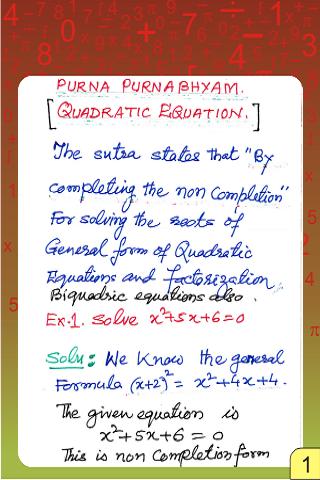 PURNA PURNABHYAM.
[QUADRATIC EQUATION.]
The sutra states that "By
completing the non completion"
For solving the roots of
General form of Quadratic
Equations and factorization,
Biquadric equations also.
Ex-1. Solve x²+5x+6=0
Soln: We know the general
Formula (x+2)² = x²+4x+4.
The given equation is
x²+5x+6 = 0
This is non Completion form
1